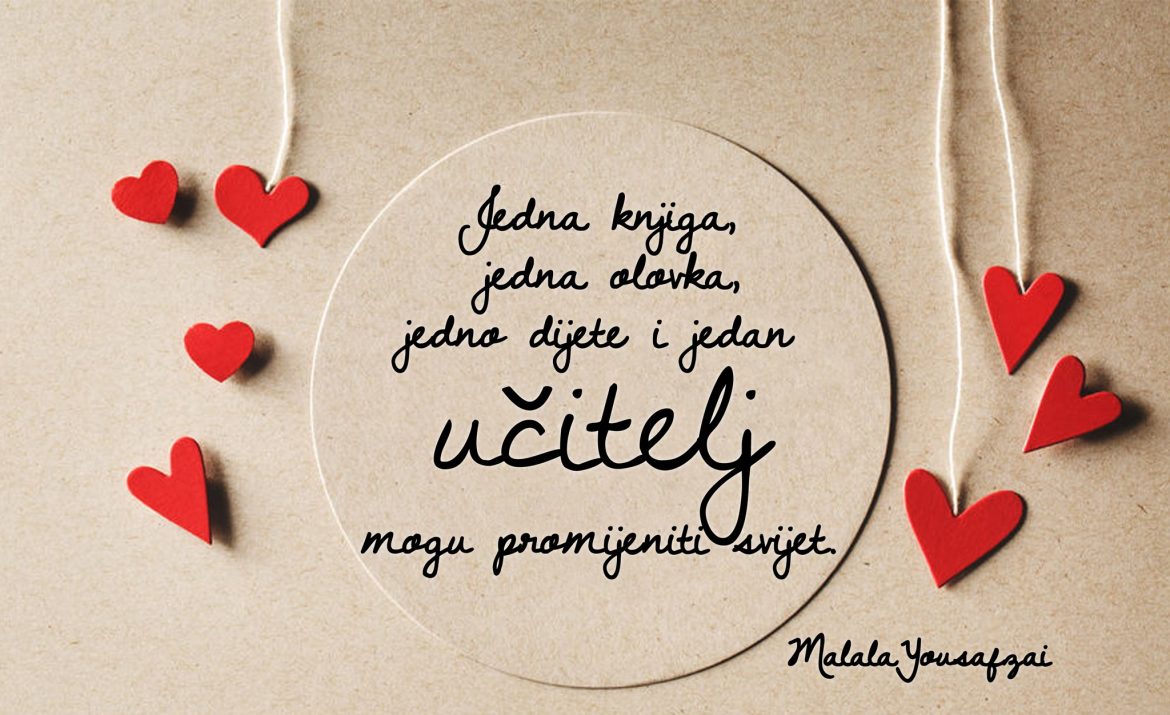 Jedna knjiga,
jedna olovka,
jedno dijete i jedan
učitelj
mogu promijeniti svijet.
Malala Yousafzai